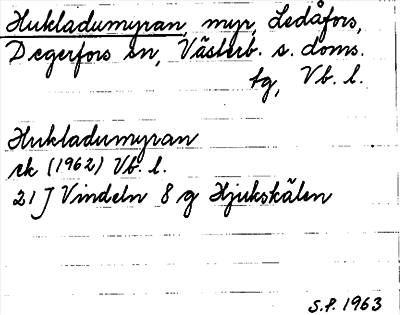 Hukladumyran, myr, Ledåfors,
Degerfors sn, Västerb. s. doms.
tg, Vb. l.
Hukladumyran
rk (1962) Vb. l.
21 J Vindeln 8 g Hjukskälen
S.P. 1963